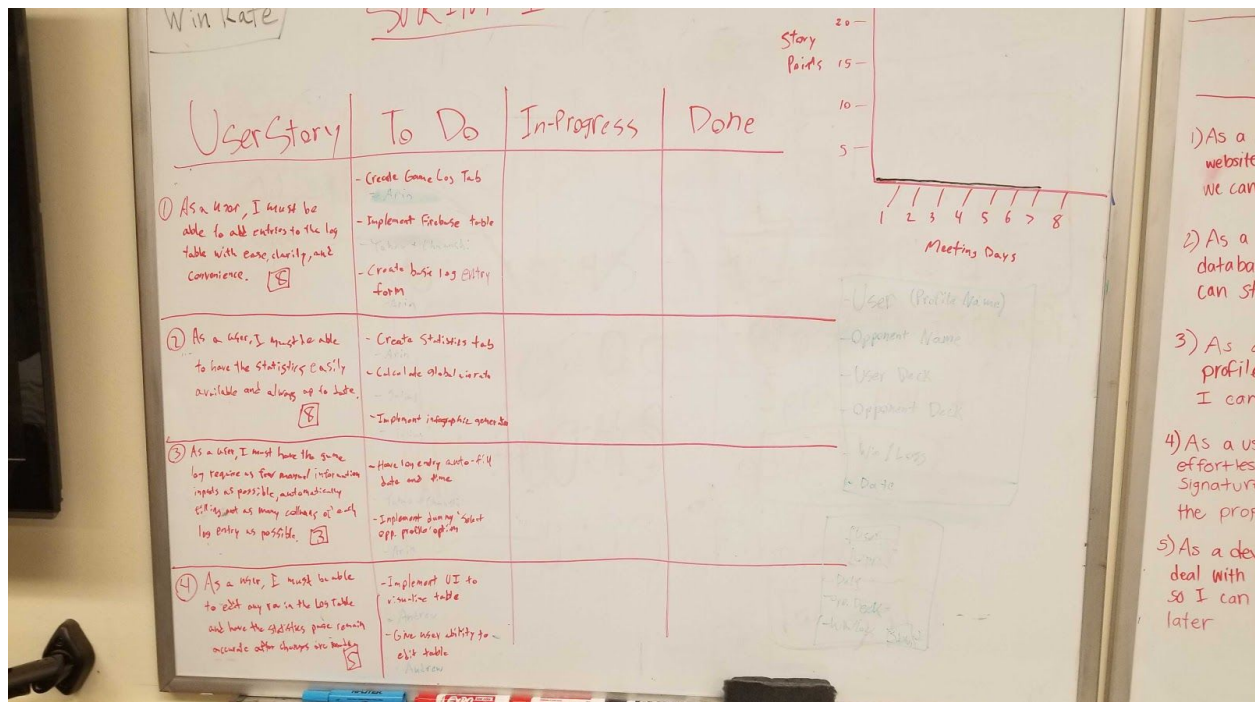 Win Rate
SPRINT 1
User Story
To Do
In-Progress
Done
① As a user, I must be
able to add entries to the log
table with ease, clarity, and
convenience. 8
- Create Game Log Tab
Arin
- Implement Firebase table
- Create basic log entry
form
Arin
② As a user, I must be able
to have the statistics easily
available and always up to date.
8
- Create Statistics tab
Arin
- Calculate global winrate
- Implement infographic
③ As a user, I must have the game
log require as few manual information
inputs as possible, automatically
filling out as many columns of each
log entry as possible. 3
- Have log entry auto-fill
date and time
- Implement dummy 'select
opp. profile' option
Arin
④ As a user, I must be able
to edit any row in the Log Table
and have the statistics page remain
accurate after changes are made.
5
- Implement UI to
visualize table
Andrew
- Give user ability to
edit table
Andrew
Story
Points
20
15
10
5
1 2 3 4 5 6 7 8
Meeting Days
- User (Profile Name)
- Opponent Name
- User Deck
- Opponent Deck
- Win/Loss
- Date
1) As a
website
we can
2) As a
databa
can st
3) As a
profile
I can
4) As a us
effortles
Signatur
the prop
5) As a dev
deal with
so I can
later
EXPO